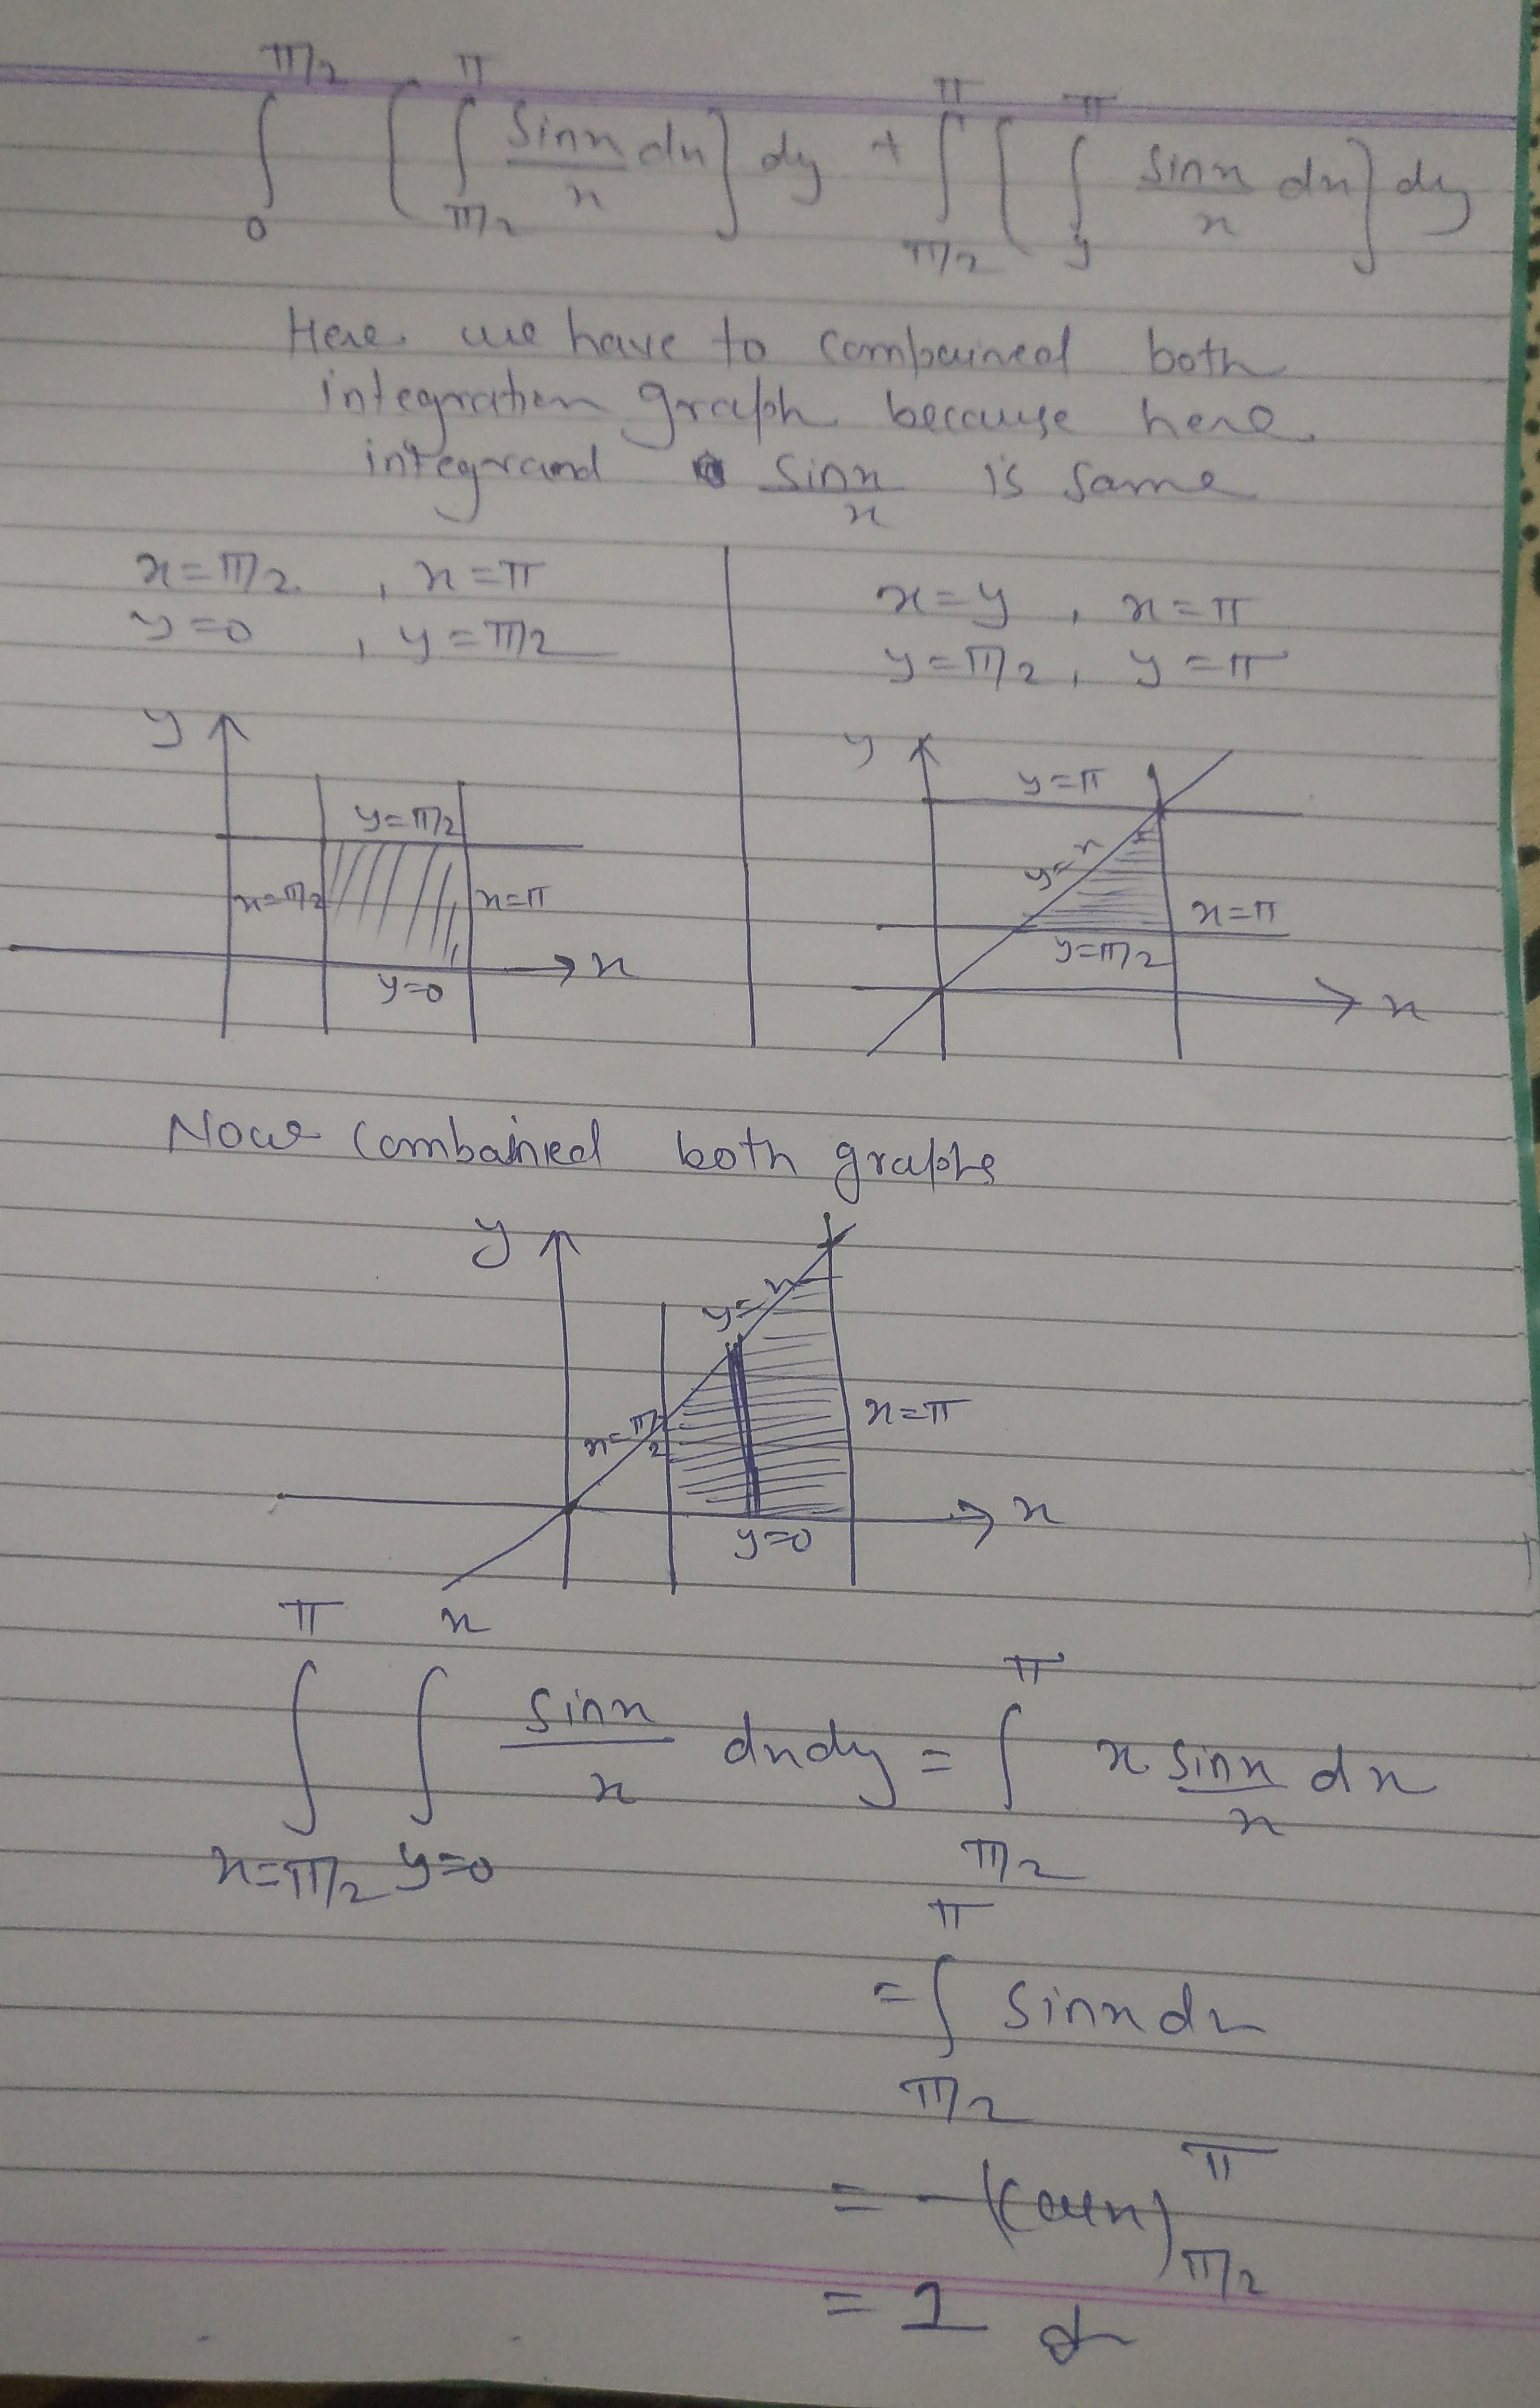 ∫_0^{π/2} [∫_{π/2}^{π} sinx/x dx] dy + ∫_{π/2}^{π} [∫_y^{π} sinx/x dx] dy
Here we have to combained both
integration graph because here
integrand sinx/x is same
x=π/2, x=π
y=0, y=π/2
x=y, x=π
y=π/2, y=π
y
y=π/2
x=π/2
x=π
x
y=0
y
y=π
y=x
x=π
y=π/2
x
Now combained both graphs
y
y=x
x=π/2
x=π
x
y=0
∫_{x=π/2}^{π} ∫_{y=0}^{x} sinx/x dxdy = ∫_{π/2}^{π} x sinx/x dx
= ∫_{π/2}^{π} sinx dx
= -(cosx)_{π/2}^{π}
= 1